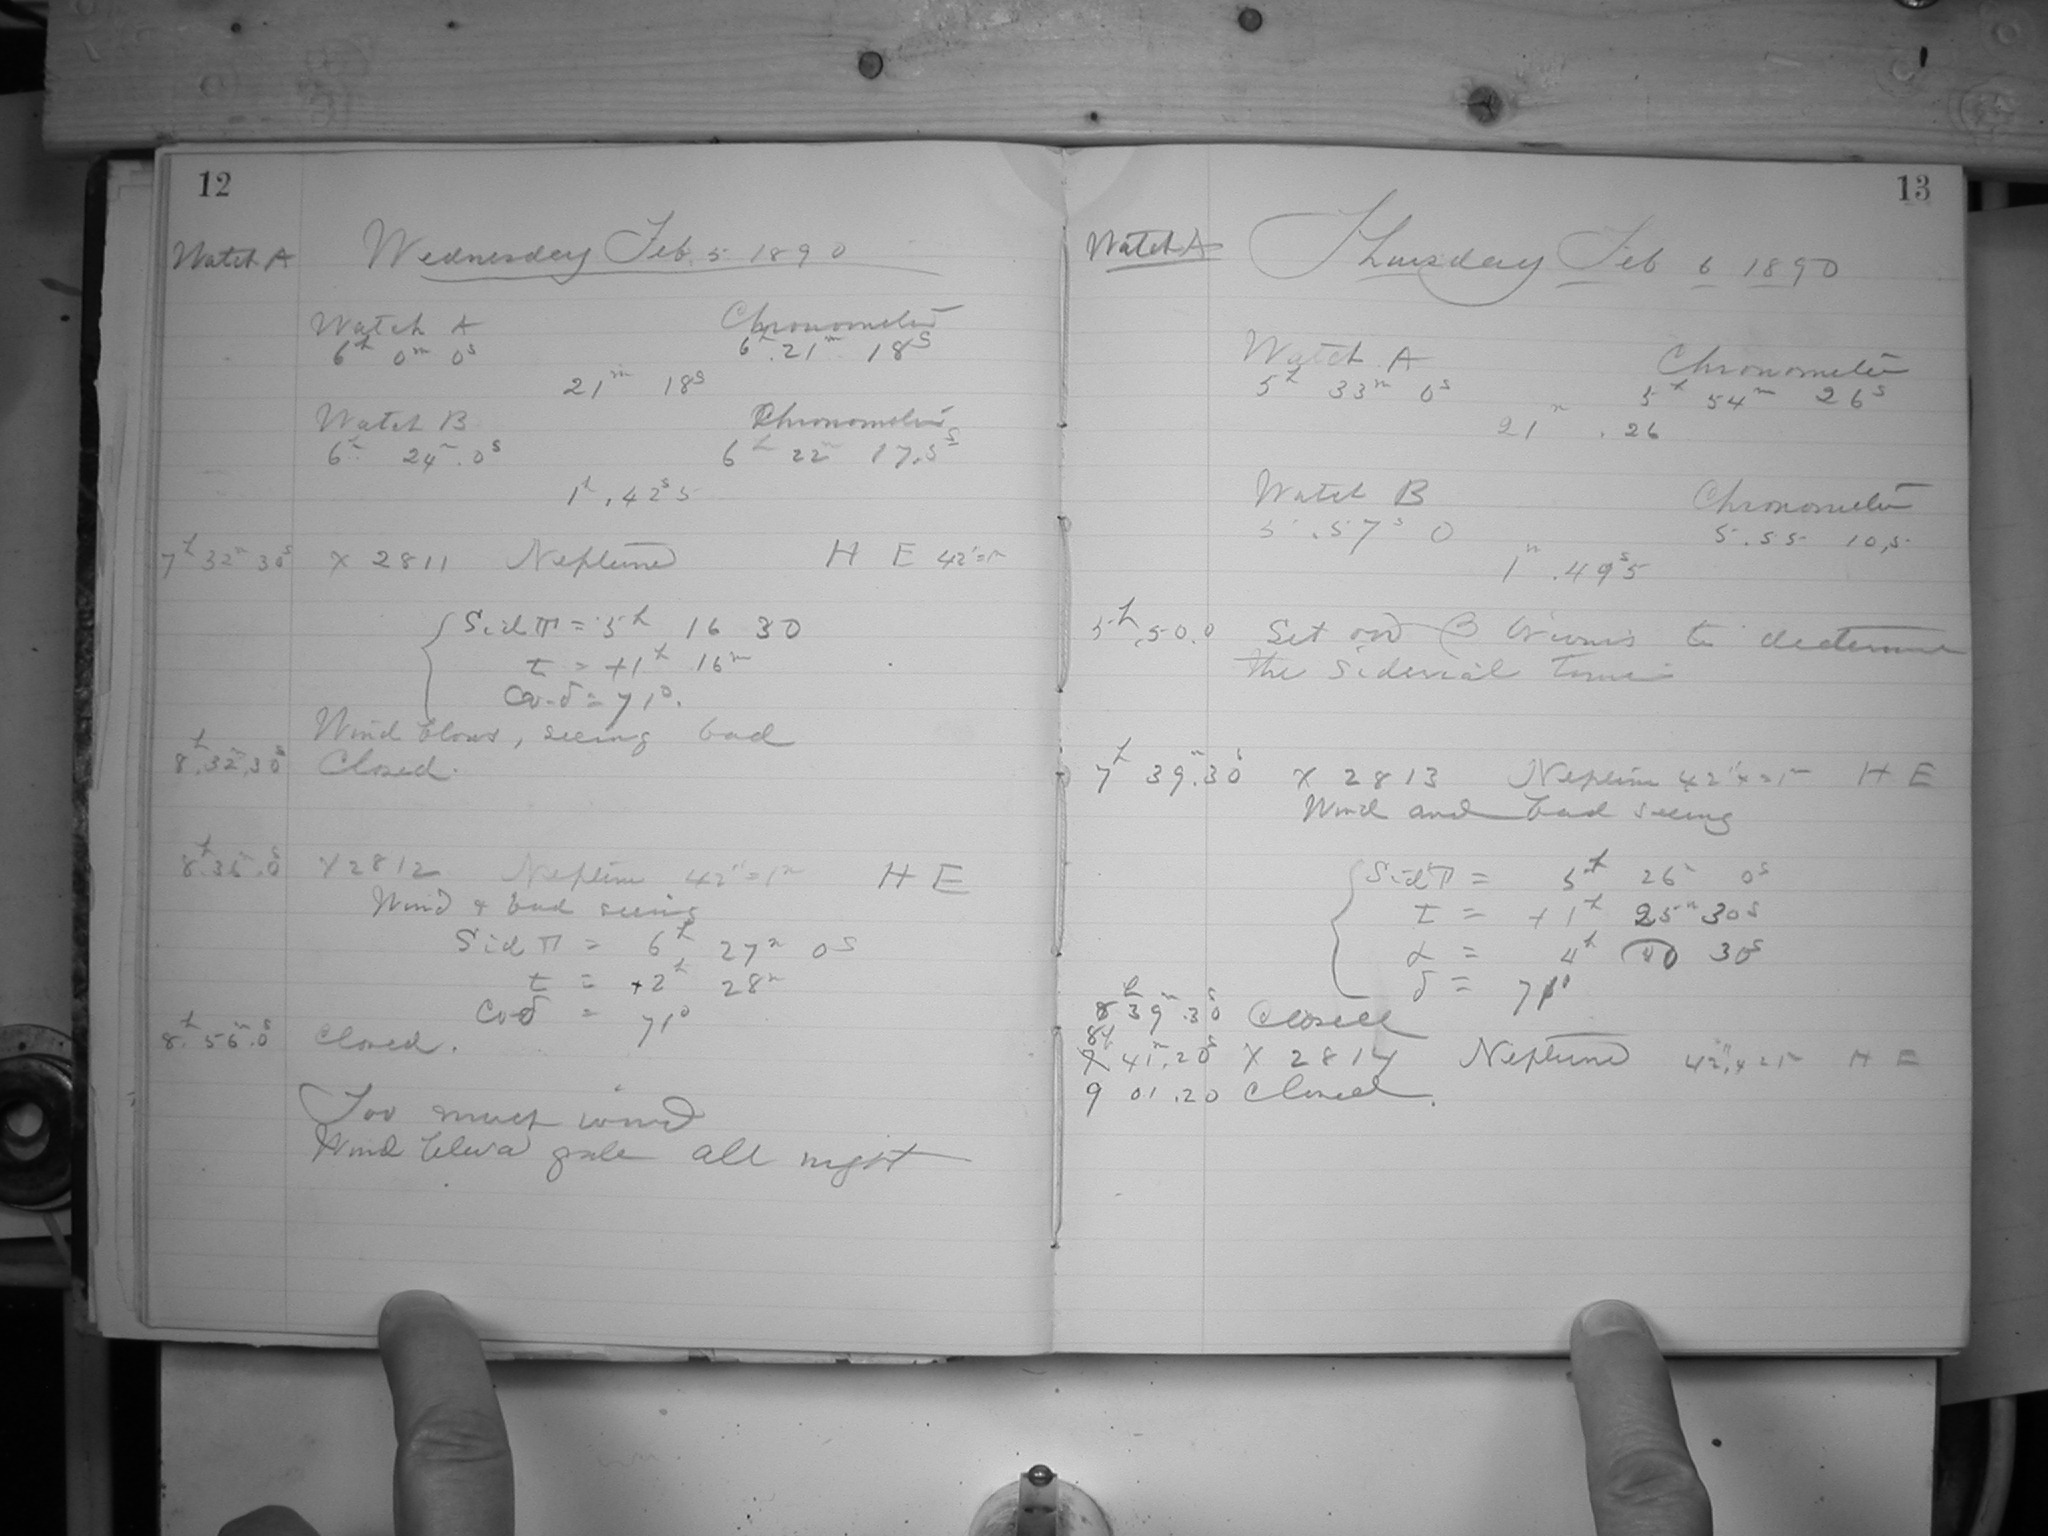 12
Watch A Wednesday Feb. 5 1890
Watch A Chronometer
6h 0m 0s 6h.21m 18s
21m 18s
Watch B Chronometer
6h 24m.0s 6h 22m 17.5s
1h.42s5
7h 32m 30s X 2811 Neptune H E 42"=1m
Sid T = 5h 16 30
t = +1h 16m
Co-δ = 71°.
Wind blows, seeing bad
8h.32m.30s Closed.
8h.36m.0s X2812 Neptune 42"=1m H E
Wind & bad seeing
Sid T = 6h 27m 0s
t = +2h 28m
Co-δ = 71°
8h.56m.0s Closed.
Too much wind
Wind blew a gale all night
13
Watch A Thursday Feb 6 1890
Watch A Chronometer
5h 33m 0s 5h 54m 26s
21m .26
Watch B Chronometer
5 .57s 0 5.55 10,5
1m .49s5
5h.50.0 Set on β Orionis to determine
the Siderial time
7h 39m.30s X 2813 Neptune 42" = 1m H E
Wind and bad seeing
Sid T = 5h 26m 0s
t = +1h 25m 30s
α = 4h 00 30s
δ = 71°
8h 39m.30s Closed
8h 41m.20s X 2814 Neptune H E
9 01.20 Closed.